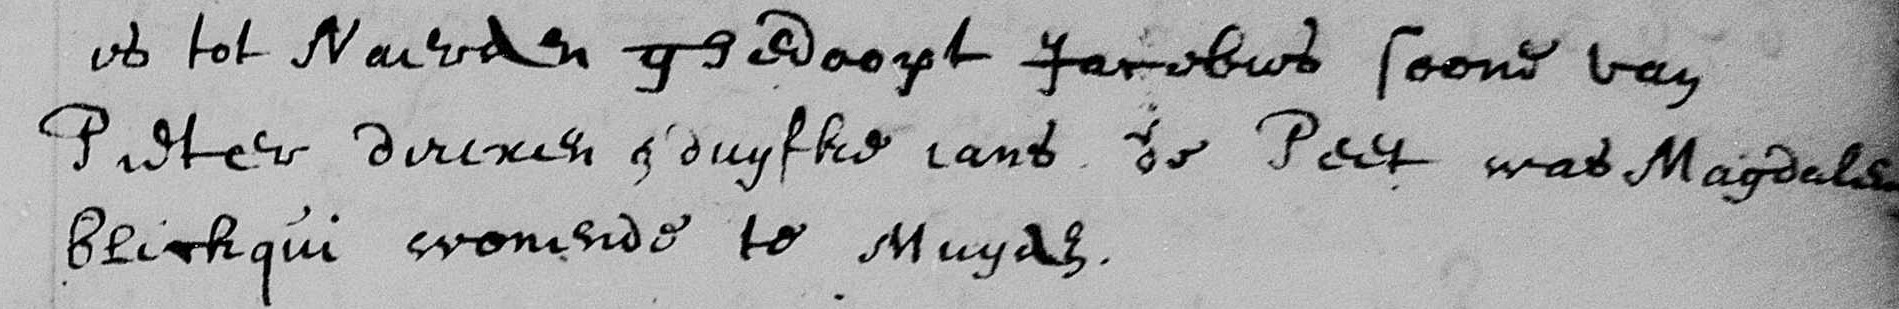 is tot Naerden gedoopt Jacobus soone van
Pieter dircxen & duyfke lans de Peet was Magdale
Blickqui wonende te Muyden.